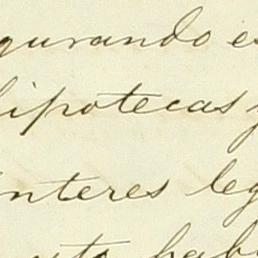 gurando e
hipotecas y
interes leg
esto hab